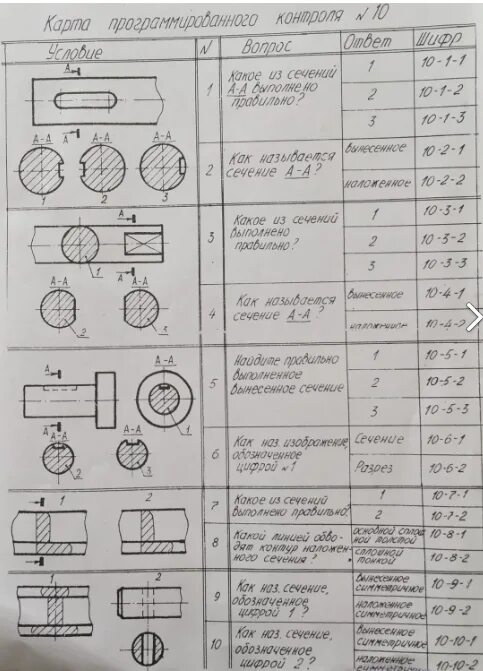 Карта программированного контроля №10
Условие
N
Вопрос
Ответ
Шифр
А
А
А-А
А-А
А-А
1
2
3
1
Какое из сечений
А-А выполнено
правильно?
1
10-1-1
2
10-1-2
3
10-1-3
2
Как называется
сечение А-А?
вынесенное
10-2-1
наложенное
10-2-2
А
А
А-А
А-А
1
2
3
3
Какое из сечений
выполнено
правильно?
1
10-3-1
2
10-3-2
3
10-3-3
4
Как называется
сечение А-А?
вынесенное
10-4-1
наложенное
10-4-2
А
А
А-А
А-А
А-А
1
2
3
5
Найдите правильно
выполненное
вынесенное сечение
1
10-5-1
2
10-5-2
3
10-5-3
6
Как наз. изображение,
обозначенное
цифрой №1
Сечение
10-6-1
Разрез
10-6-2
1
2
7
Какое из сечений
выполнено правильно?
1
10-7-1
2
10-7-2
8
Какой линией обво-
дят контур наложен-
ного сечения?
основной сплош
ной толстой
10-8-1
сплошной
тонкой
10-8-2
1
2
9
Как наз. сечение,
обозначенное
цифрой 1?
Вынесенное
симметричное
10-9-1
наложенное
симметричное
10-9-2
10
Как наз. сечение,
обозначенное
цифрой 2?
Вынесенное
симметричное
10-10-1
наложенное
симметричное
10-10-2